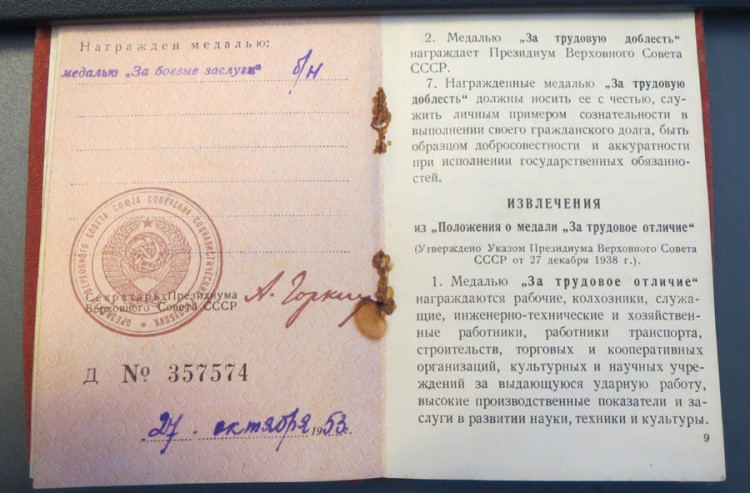 Награжден медалью:
медалью „За боевые заслуги“ б/н
ПРЕЗИДИУМ ВЕРХОВНОГО СОВЕТА СОЮЗА СОВЕТСКИХ СОЦИАЛИСТИЧЕСКИХ РЕСПУБЛИК
Секретарь Президиума
Верховного Совета СССР
А. Горкин
Д № 357574
27 октября 1953 г.
2. Медалью „За трудовую доблесть“
награждает Президиум Верховного Совета
СССР.
7. Награжденные медалью „За трудовую
доблесть“ должны носить ее с честью, слу-
жить личным примером сознательности в
выполнении своего гражданского долга, быть
образцом добросовестности и аккуратности
при исполнении государственных обязанно-
стей.
ИЗВЛЕЧЕНИЯ
из „Положения о медали „За трудовое отличие“
(Утверждено Указом Президиума Верховного Совета
СССР от 27 декабря 1938 г.).
1. Медалью „За трудовое отличие“
награждаются рабочие, колхозники, служа-
щие, инженерно-технические и хозяйствен-
ные работники, работники транспорта,
строительств, торговых и кооперативных
организаций, культурных и научных учре-
ждений за выдающуюся ударную работу,
высокие производственные показатели и за-
слуги в развитии науки, техники и культуры.
9